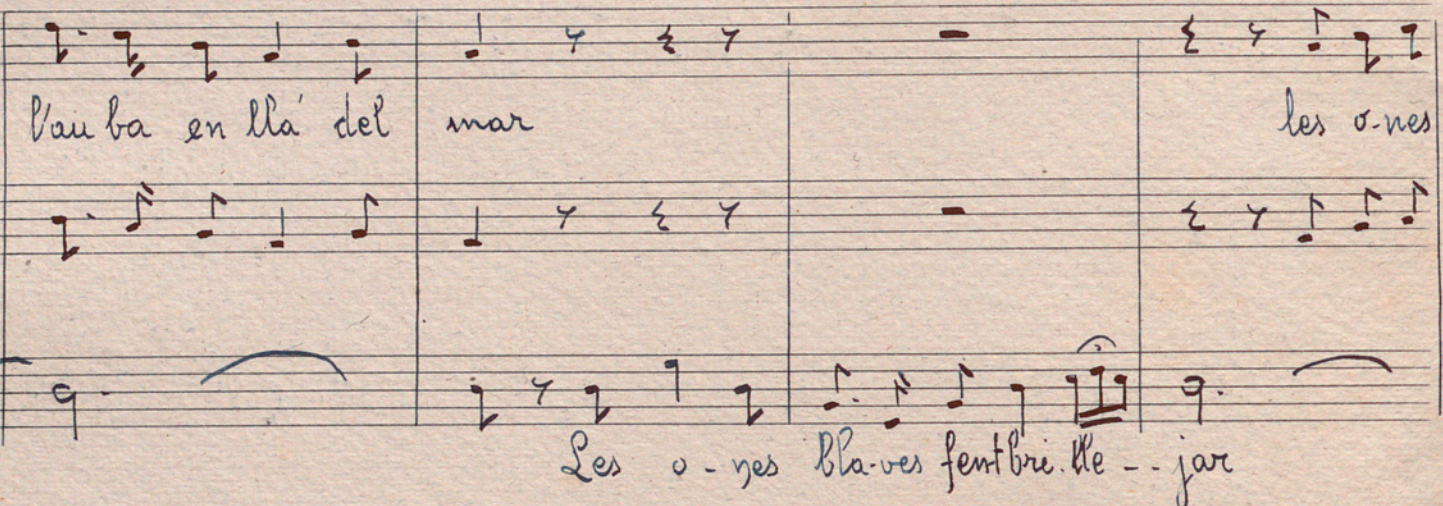 l'au ba en llá del mar les o-nes
Les o-nes bla-ves fent bri-lle--jar